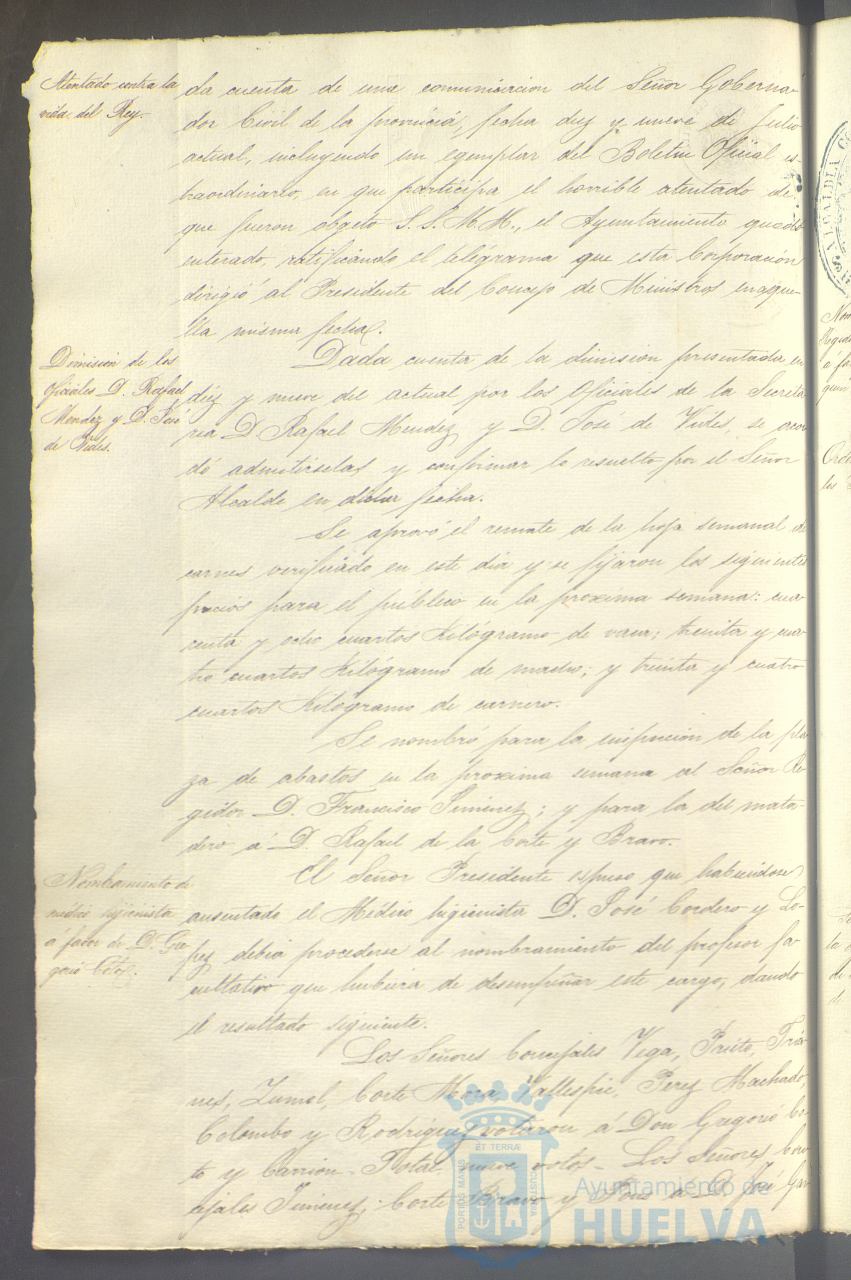 Atentado contra la
vida del Rey.
da cuenta de una comunicacion del Señor Goberna-
dor Civil de la provincia, fecha diez y nueve de Julio
actual, incluyendo un egemplar del Boletin Oficial es-
traordinario, en que participa el horrible atentado de
que fueron objeto S.S.M.M., el Ayuntamiento quedó
enterado, ratificando el telégrama que esta Corporacion
dirigió al Presidente del Consejo de Ministros en aque-
lla misma fecha.
Dimision de los
oficiales D. Rafael
Mendez y D. José
de Vides.
Dada cuenta de la dimision presentada en
diez y nueve del actual por los Oficiales de la Secreta
ria D. Rafael Mendez y D. José de Vides, se acor
dó admitirselas y confirmar lo resuelto por el Señor
Alcalde en dicha fecha.
Se aprovó el remate de la hoja semanal de
carnes verificado en este dia y se fijaron los siguientes
precios para el público en la proxima semana: cua
renta y ocho cuartos Kilógramo de vaca; treinta y cua-
tro cuartos Kilógramo de macho; y treinta y cuatro
cuartos Kilógramo de carnero.
Se nombró para la inspeccion de la pla
za de abastos en la proxima semana al Señor Re-
gidor D. Francisco Jimenez; y para la del mata-
dero á D. Rafael de la Corte y Bravo.
Nombramiento de
médico higienista
á favor de D. Gre-
gorio Coto.
El Señor Presidente espuso que habiendose
ausentado el Médico higienista D. José Cordero y Lo-
pez debia procederse al nombramiento del profesor fa-
cultativo que hubiera de desempeñar este cargo, dando
el resultado siguiente.
Los Señores Concejales Vega, Tria-
nes, Zumel, Corte Mora, Vallespin, Perez Machado,
Colombo y Rodriguez votaron á Don Gregorio Co-
to y Carrion. Total nueve votos. Los Señores Con-
cejales Jimenez, Corte Bravo y á D. José
ET TERRÆ
PORTUS MARIS
CUSTODIA
Ayuntamiento de
HUELVA
ALCALDIA CO